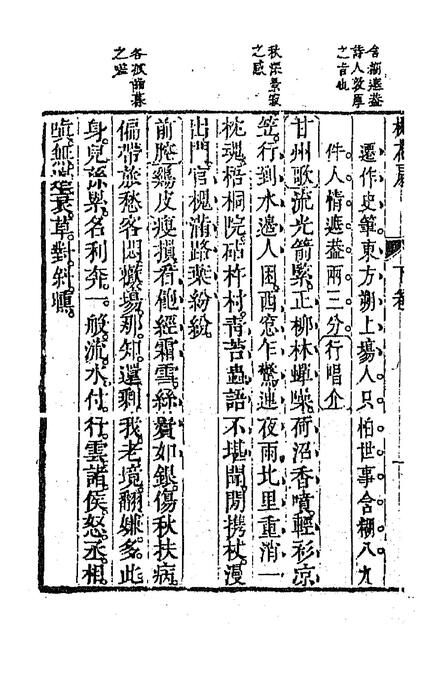 含糊遮蓋
詩人敦厚
之旨也
秋深景寂
之感
各暮
之嗟
桃花扇
下卷
遷作史筆東方朔上場人只怕世事含糊八九
件人情遮蓋兩三分行唱介
甘州歌流光箭緊正柳林蟬噪荷沼香噴輕衫凉
笠行到水邊人困西窓乍驚連夜雨北里重消一
枕魂梧桐院砧杵村青苔蟲語不堪聞閒携杖漫
出門宮槐滿路葉紛紛
前腔雞皮瘦損看飽經霜雪絲鬢如銀傷秋扶病
偏帶旅愁客悶歡場那知還剩我老境翻嫌多此
身兒孫累名利奔一般流水付行雲諸侯怒丞相
嗔無邊衰草對斜曛